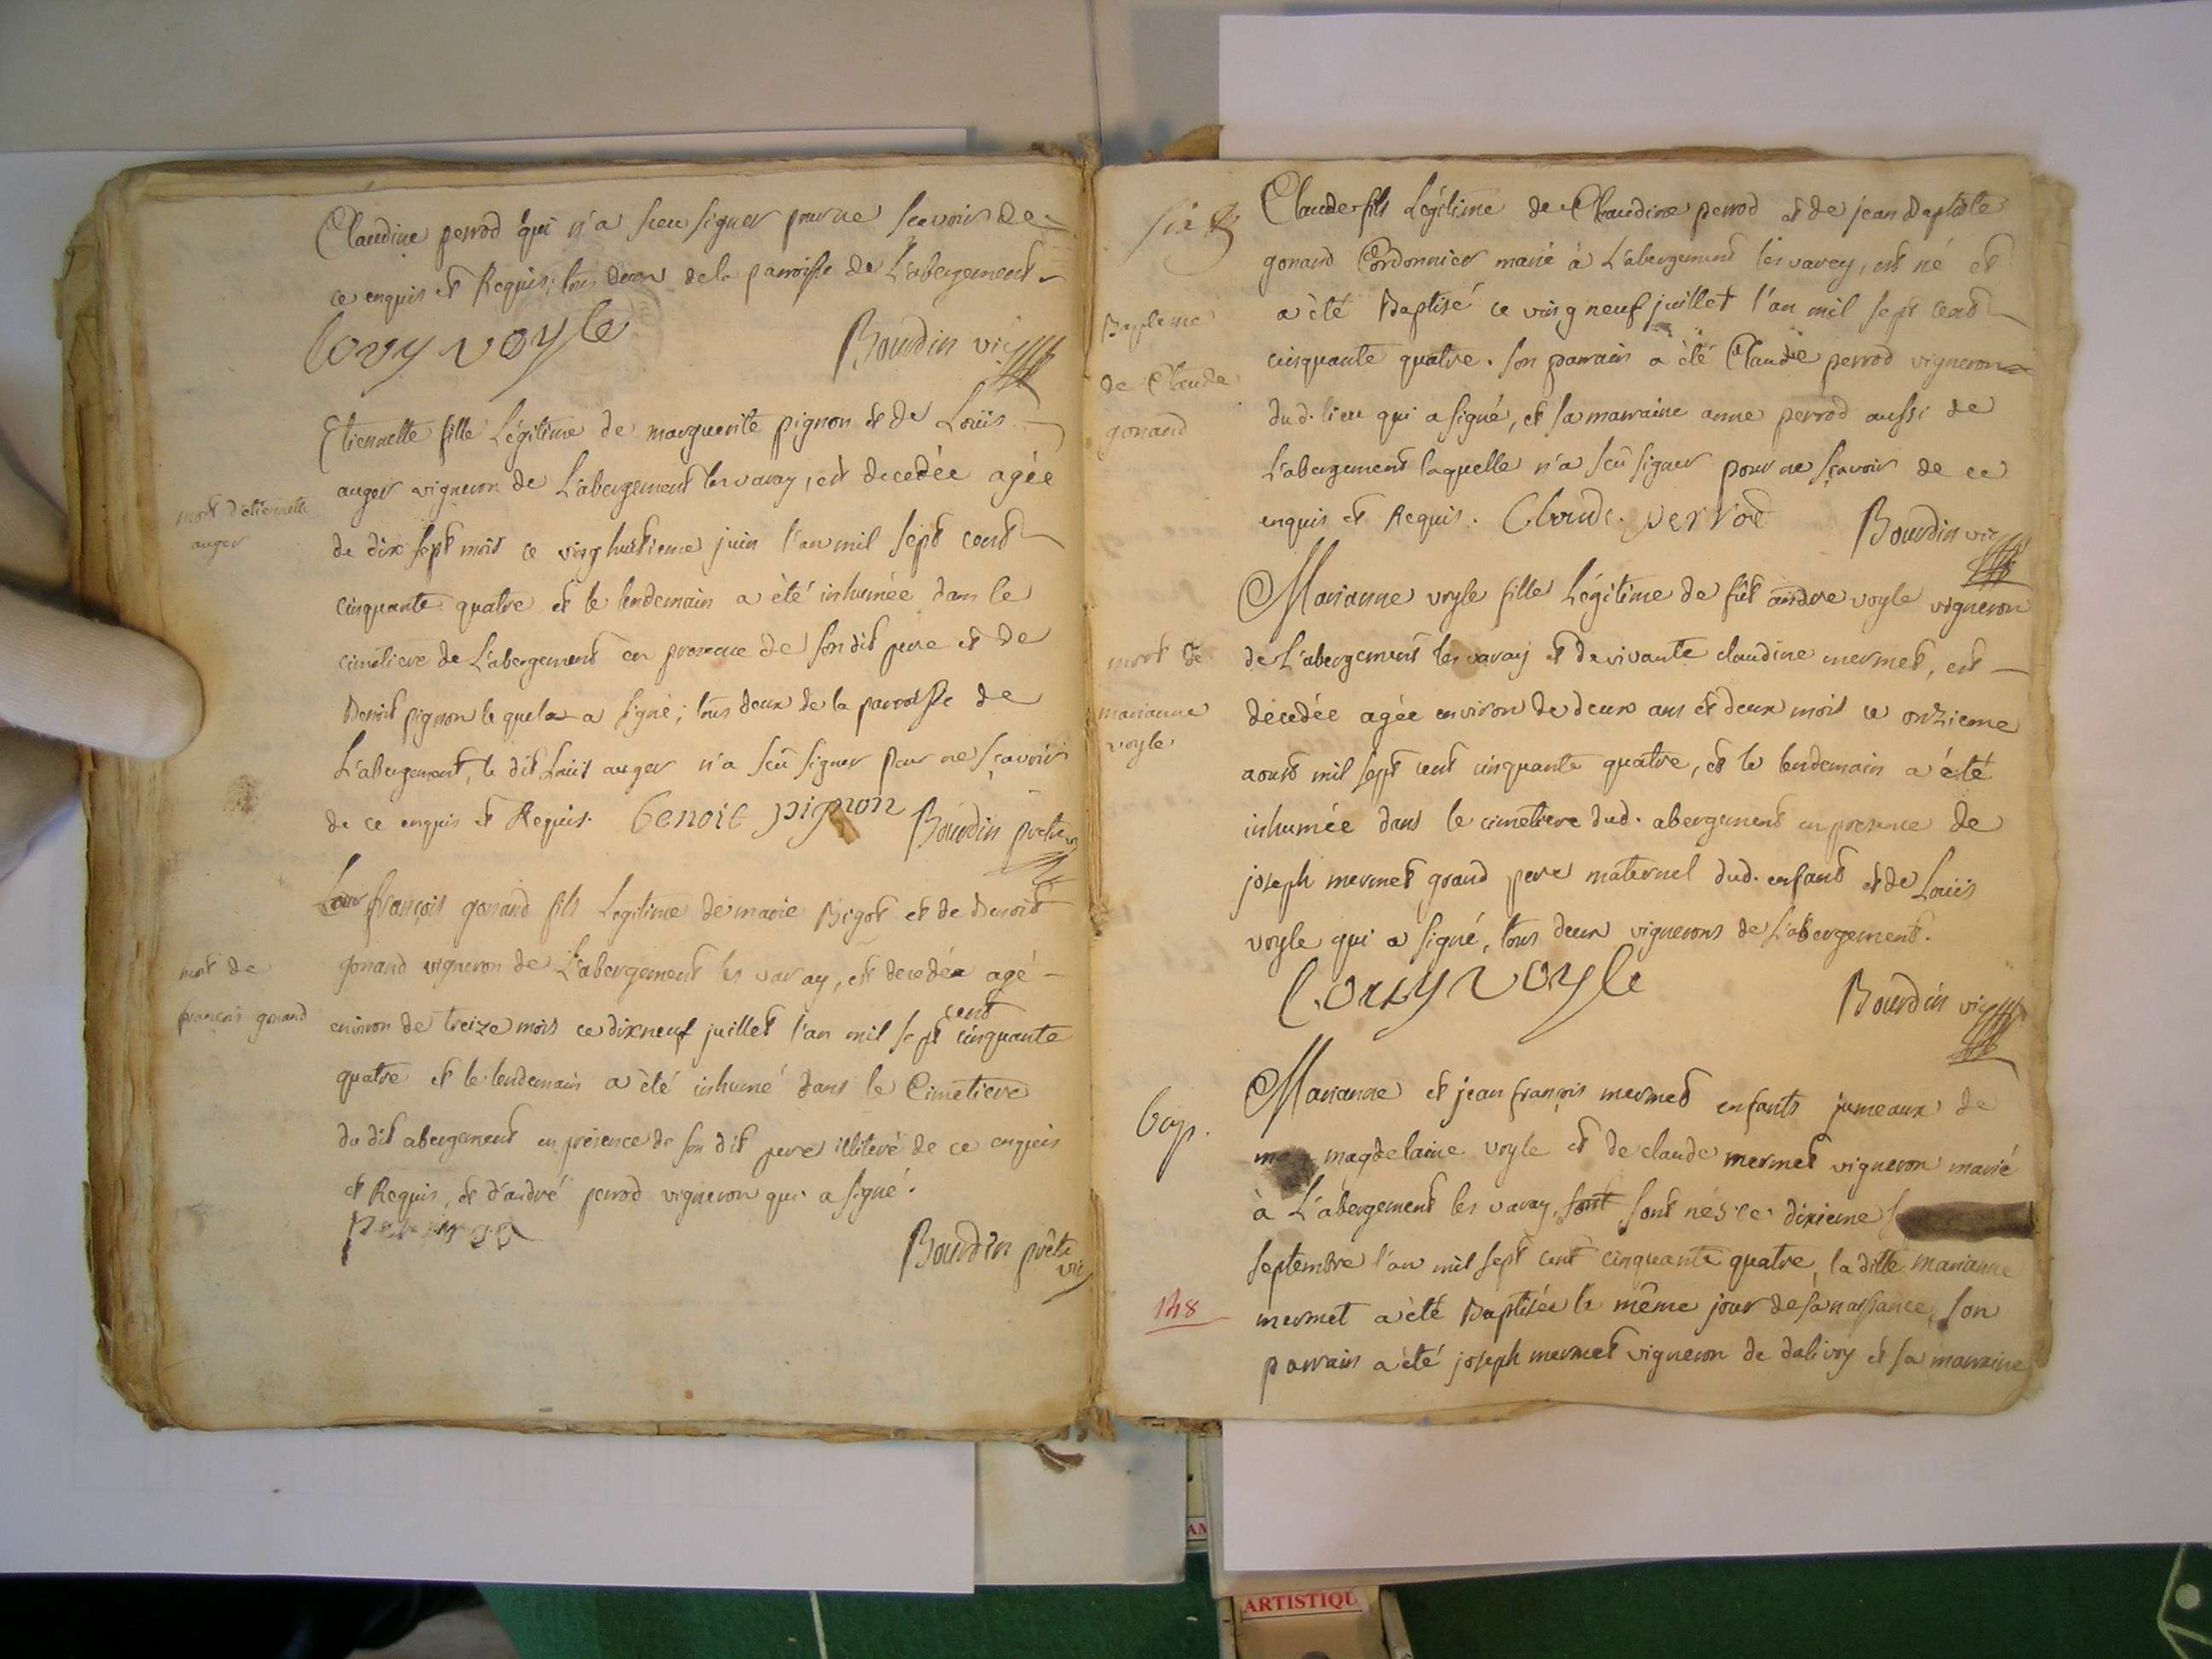 Claudine perrod qui n'a sceu signer pour ne scavoir de
ce enquis et Requis, tous deux de la parroisse de L'abergement
louy voyle Bourdin vic
Etiennette fille Légitime de marguerite pignon et de Loüis
auger vigneron de L'abergement les varay, est decedée agée
mort d'etiennette
auger
de dix sept mois ce vinghuitieme juin l'an mil sept cent
cinquante quatre et le lendemain a èté inhumée dans le
cimetiere de L'abergement en presence de son dit pere et de
Benoit pignon le quel a signé; tous deux de la parroisse de
L'abergement, le dit Loüis auger n'a sçû signer pour ne sçavoir
de ce enquis et Requis. benoit pignon Bourdin pretre vic
françois gonand fils Legitime de marie Bigot et de Benoit
mort de
françois gonand
gonand vigneron de L'abergement les varay, est decedéa agé
environ de treize mois ce dixneuf juillet l'an mil sept cent cinquante
quatre et le lendemain a èté inhumé dans le Cimetiere
du dit abergement en présence de son dit pere illiteré de ce enquis
et Requis, et d'andré perrod vigneron qui a signé.
Bourdin prêtre
vic
six
Claude fils Légitime de Claudine perrod et de jean Baptiste
gonand Cordonnier marié à L'abergement les varey, est né et
Bapteme
de Claude
gonand
a èté Baptisé ce vingneuf juillet l'an mil sept cent
cinquante quatre. son parrain a èté Claude perrod vigneron
dud. lieu qui a signé, et sa marraine anne perrod aussi de
L'abergement laquelle n'a sçû signer pour ne sçavoir de ce
enquis et Requis. Claude perrod Bourdin vic
Marianne voyle fille Légitime de fût andre voyle vigneron
mort de
marianne
voyle
de L'abergement les varay et de vivante claudine mermet, est
decedée agée environ de deux ans et deux mois ce onzieme
aoust mil sept cent cinquante quatre, et le lendemain a été
inhumée dans le cimetiere dud. abergement en presence de
joseph mermet grand pere maternel dud. enfant et de Loüis
voyle qui a signé, tous deux vignerons de L'abergement.
louy voyle Bourdin vic
bap.
Marianne et jean françois mermet enfants jumeaux de
magdelaine voyle et de claude mermet vigneron marié
à L'abergement les varay, sont sont nés ce dixieme
septembre l'an mil sept cent cinquante quatre, la ditte marianne
148
mermet a èté Baptisée le même jour de sa naissance, son
parrain a èté joseph mermet vigneron de dalivoy et sa marraine
AN
ARTISTIQU